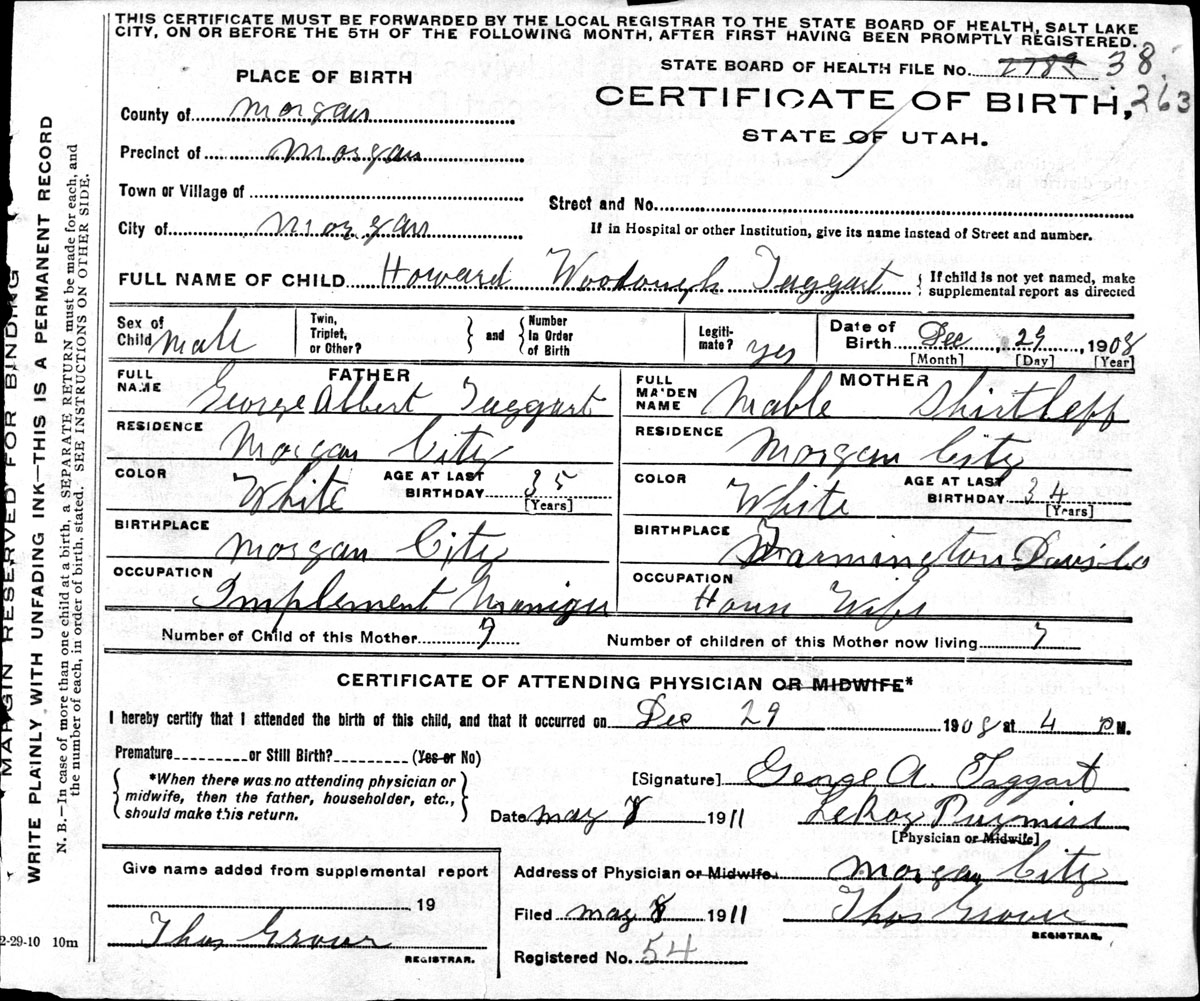 THIS CERTIFICATE MUST BE FORWARDED BY THE LOCAL REGISTRAR TO THE STATE BOARD OF HEALTH, SALT LAKE
CITY, ON OR BEFORE THE 5TH OF THE FOLLOWING MONTH, AFTER FIRST HAVING BEEN PROMPTLY REGISTERED.
STATE BOARD OF HEALTH FILE No. 2789 38
263
PLACE OF BIRTH
CERTIFICATE OF BIRTH,
STATE OF UTAH.
County of Morgan
Precinct of Morgan
Town or Village of
Street and No.
City of Morgan
If in Hospital or other Institution, give its name instead of Street and number.
FULL NAME OF CHILD Howard Taggart
{ If child is not yet named, make
supplemental report as directed
Sex of
Child Male
Twin,
Triplet,
or Other? } and { Number
In Order
of Birth
Legiti-
mate? yes
Date of
Birth Dec 29, 1908
[Month] [Day] [Year]
FATHER
FULL
NAME George Albert Taggart
RESIDENCE Morgan City
COLOR White
AGE AT LAST
BIRTHDAY 35
[Years]
BIRTHPLACE Morgan City
OCCUPATION Implement
MOTHER
FULL
MAIDEN
NAME Mable Shirtleff
RESIDENCE Morgan City
COLOR White
AGE AT LAST
BIRTHDAY 34
[Years]
BIRTHPLACE Farmington Davis Co
OCCUPATION House Wife
Number of Child of this Mother 7
Number of children of this Mother now living 7
CERTIFICATE OF ATTENDING PHYSICIAN OR MIDWIFE*
I hereby certify that I attended the birth of this child, and that it occurred on Dec 29 1908 at 4 P M.
Premature or Still Birth? (Yes or No)
{ *When there was no attending physician or
midwife, then the father, householder, etc.,
should make this return. }
[Signature] George A. Taggart
Date May 8 1911
LeRoy
[Physician or Midwife]
Address of Physician or Midwife. Morgan City
Filed May 8 1911 Thos Grover
REGISTRAR.
Registered No. 54
Give name added from supplemental report
19
Thos Grover
REGISTRAR.
2-29-10 10m
MARGIN RESERVED FOR BINDING
WRITE PLAINLY WITH UNFADING INK—THIS IS A PERMANENT RECORD
N. B.—In case of more than one child at a birth, a SEPARATE RETURN must be made for each, and
the number of each, in order of birth, stated. SEE INSTRUCTIONS ON OTHER SIDE.